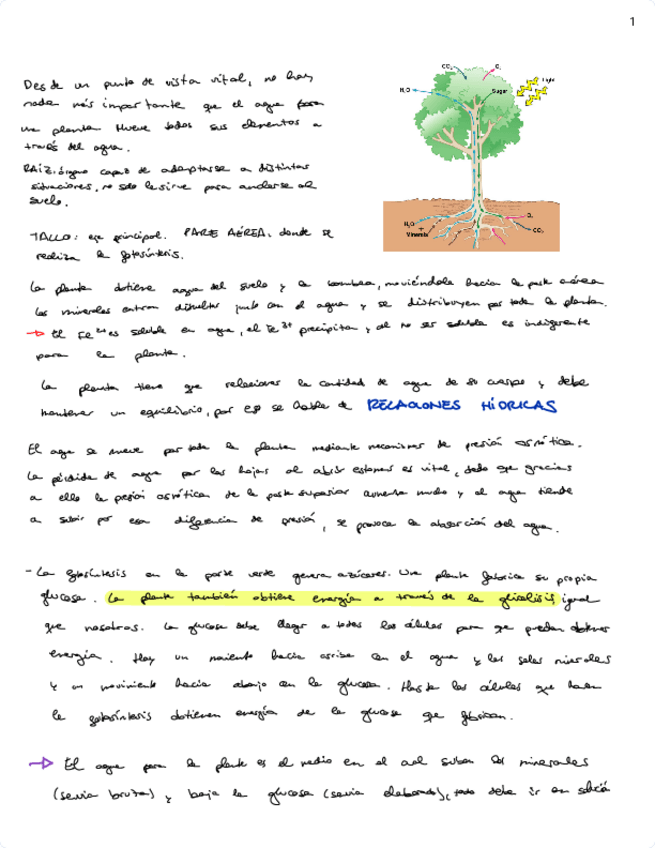 1
Desde un punto de vista vital, no hay
nada más importante que el agua para
una planta. Mueve todos sus elementos a
través del agua.
RAÍZ: órgano capaz de adaptarse a distintas
situaciones, no solo le sirve para anclarse al
suelo.
TALLO: eje principal. PARTE AÉREA: donde se
realiza la fotosíntesis.
CO₂
O₂
H₂O
Sugar
Light
H₂O
+
Minerals
O₂
CO₂
La planta obtiene agua del suelo y la bombea, moviéndola hacia la parte aérea
Los minerales entran disueltos junto con el agua y se distribuyen por toda la planta.
→ El Fe²⁺ es soluble en agua, el Fe³⁺ precipita y al no ser soluble es indigerente
para la planta.
La planta tiene que relacionar la cantidad de agua de su cuerpo y debe
mantener un equilibrio, por eso se habla de RELACIONES HÍDRICAS
El agua se mueve por toda la planta mediante mecanismos de presión osmótica.
La pérdida de agua por las hojas al abrir estomas es vital, dado que gracias
a ello la presión osmótica de la parte superior aumenta mucho y el agua tiende
a subir por esa diferencia de presión, se provoca la absorción del agua.
- La fotosíntesis en la parte verde genera azúcares. Una planta fabrica su propia
glucosa. La planta también obtiene energía a través de la glicolisis igual
que nosotros. La glucosa debe llegar a todas las células para que puedan obtener
energía. Hay un movimiento hacia arriba con el agua y las sales minerales
y un movimiento hacia abajo con la glucosa. Hasta las células que hacen
la fotosíntesis obtienen energía de la glucosa que fabrican.
→ El agua para la planta es el medio en el cual suben los minerales
(savia bruta) y baja la glucosa (savia elaborada), todo debe ir en solución